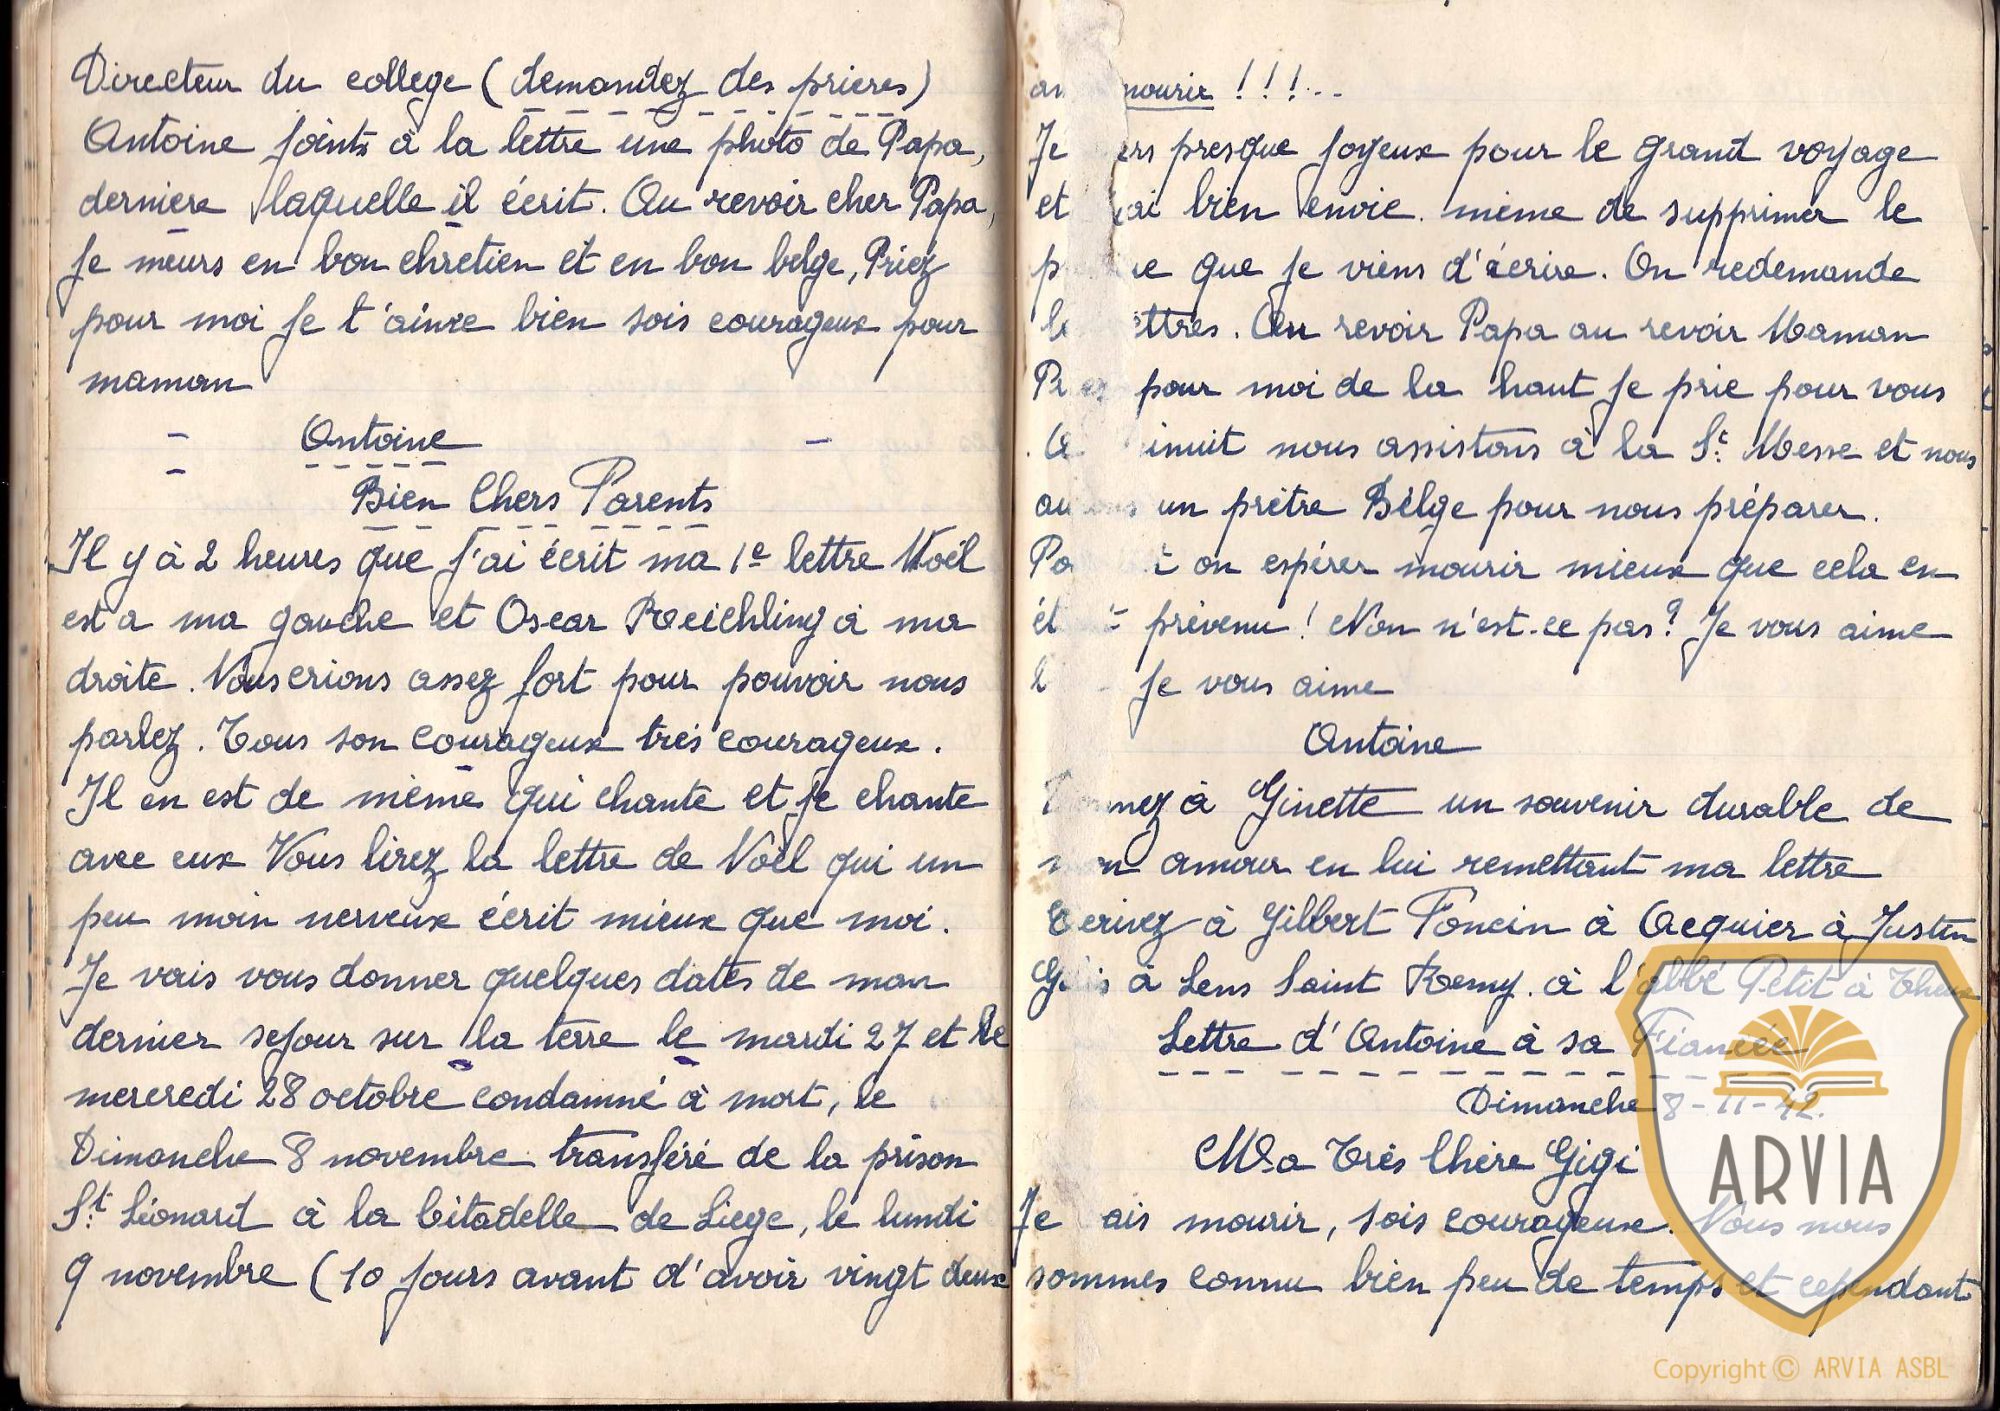 Directeur du college (demandez des prieres)
Antoine joints à la lettre une photo de Papa,
derniere laquelle il écrit. Au revoir cher Papa,
je meurs en bon chretien et en bon belge, Priez
pour moi je t'aime bien sois courageux pour
maman
Antoine
Bien Chers Parents
Il y à 2 heures que j'ai écrit ma 1e lettre Noël
est a ma gauche et Oscar Reichling à ma
droite. Nous crions assez fort pour pouvoir nous
parlez. Tous son courageux très courageux.
Il en est de mème qui chante et je chante
avec eux Vous lirez la lettre de Noël qui un
peu moin nerveux écrit mieux que moi.
Je vais vous donner quelques dates de mon
dernier sejour sur la terre le mardi 27 et le
mercredi 28 octobre condamné à mort, le
Dimanche 8 novembre transféré de la prison
St. Léonard à la Citadelle de Liege, le lundi
9 novembre (10 jours avant d'avoir vingt deux
mourir !!!...
Je presque joyeux pour le grand voyage
et bien envie même de supprimer le
que je viens d'écrire. On redemande
Au revoir Papa au revoir Maman
pour moi de la haut je prie pour vous
nous assistons à la St. Messe et nous
un prêtre Bèlge pour nous préparer.
on espérer mourir mieux que cela en
prévenu ! Non n'est-ce pas ? Je vous aime
je vous aime
Antoine
à Ginette un souvenir durable de
amour en lui remettant ma lettre
Ecrivez à Gilbert Foncin à Acquier à Justin
à Lens Saint Remy. à l'abbé Petit à Theux
Lettre d'Antoine à sa Fiancée
Dimanche 8-11-42.
Ma Très Chère Gigi
Je mourir, sois courageuse. Nous nous
sommes connu bien peu de temps et cependant
ARVIA
Copyright © ARVIA ASBL